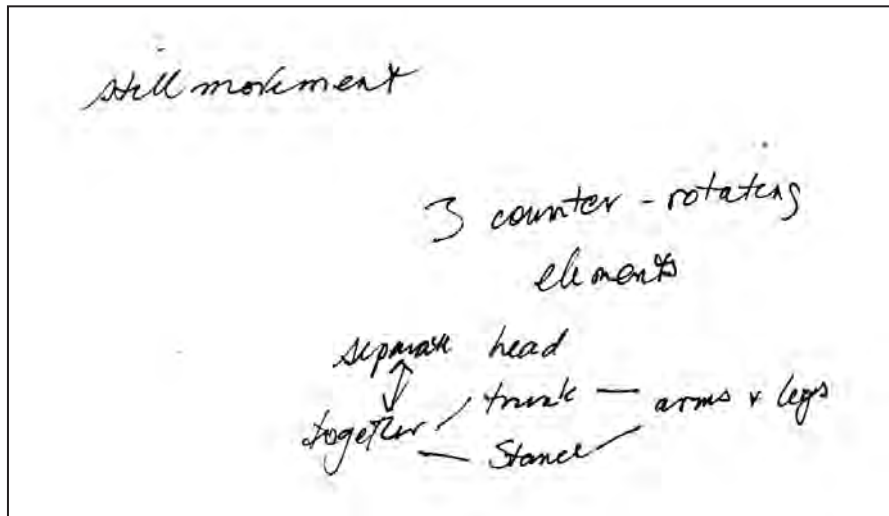 still movement
3 counter-rotating
elements
separate head
together trunk — arms & legs
— Stance